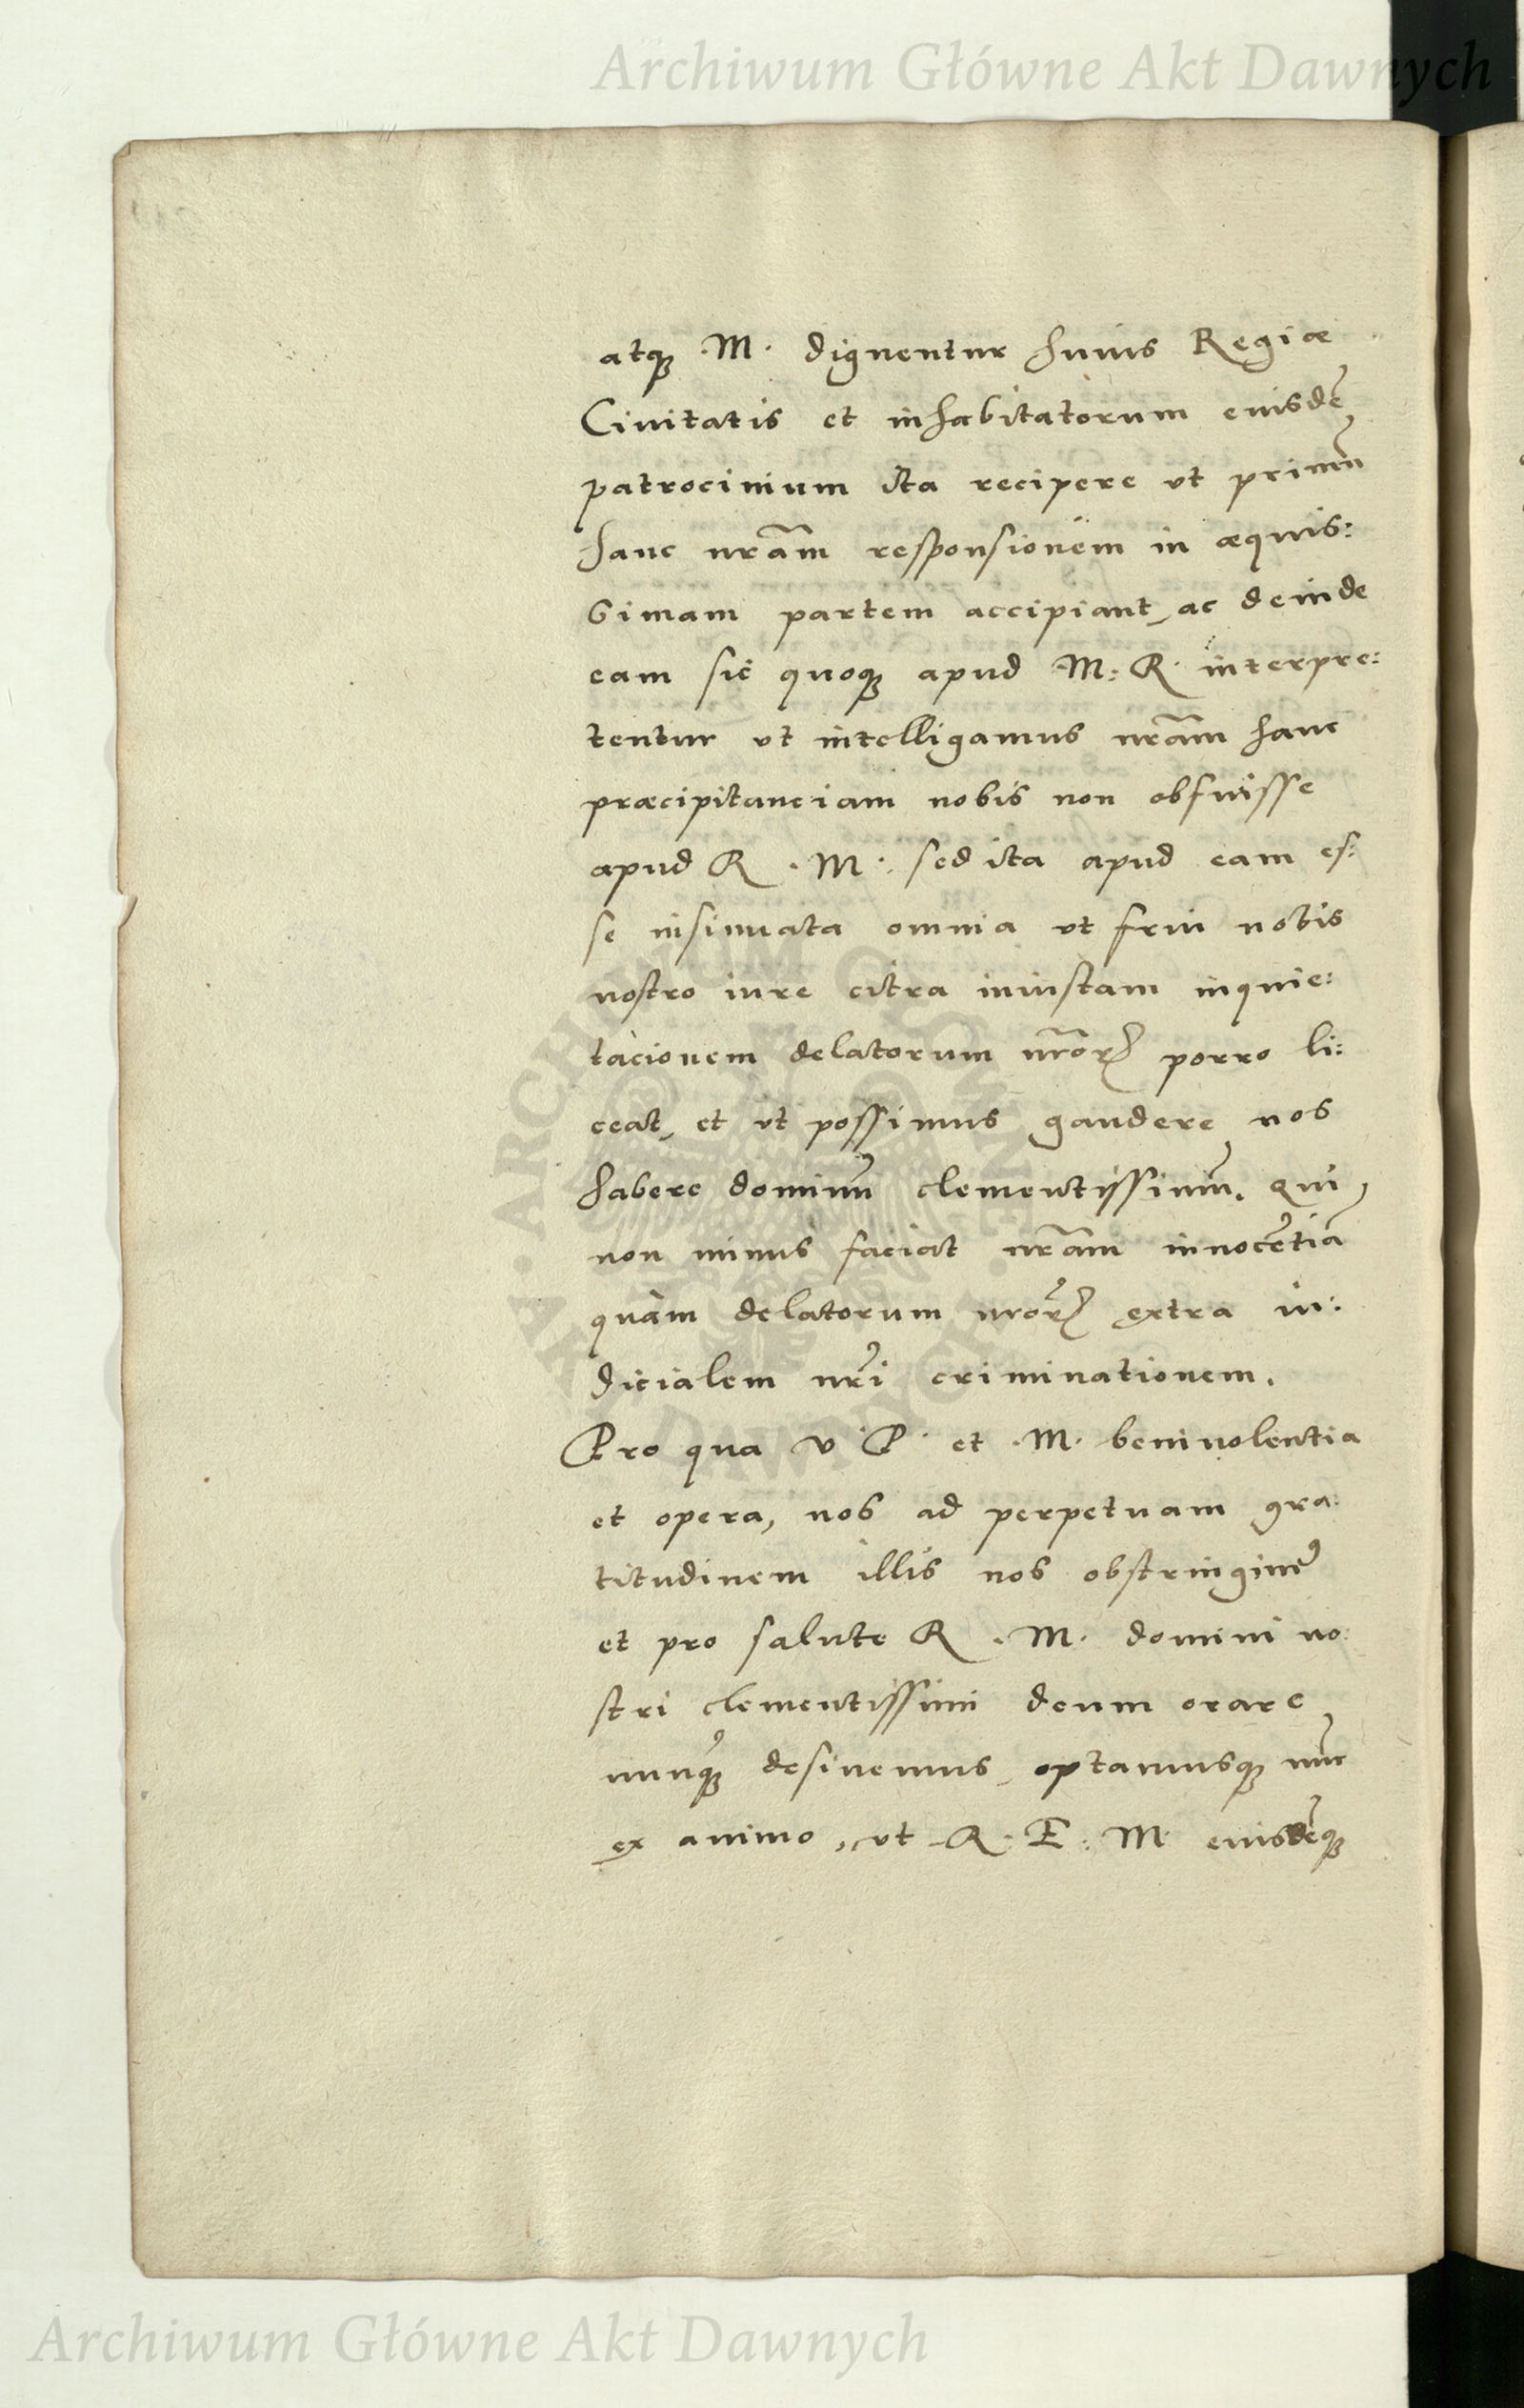 Archiwum Główne Akt Dawnych
atq᷒ .M. dignentur huius Regiæ
Ciuitatis et inhabitatorum eiusdē
patrocinium ita recipere vt primū
hanc nrãm responsionem in æquis:
simam partem accipiant, ac deinde
eam sic quoq᷒ apud M: R. interpre:
tentur vt intelligamus nrãm hanc
præcipitanciam nobis non obfuisse
apud R .M. sed ita apud eam es:
se insinuata omnia vt frui nobis
nostro iure citra iniustam inquie:
tacionem delatorum nrõrꝝ porro li:
ceat, et vt possimus gaudere nos
habere dominū clementissimū, qui
non minus faciat nrãm innocētiā
quàm delatorum nrõrꝝ extra iu:
dicialem nrĩ criminationem.
Pro qua V P. et .M. beniuolentia
et opera, nos ad perpetuam gra:
titudinem illis nos obstringimꝰ
et pro salute R .M. domini no:
stri clementissimi deum orare
nunq᷒ desinemus, optamusq᷒ nūc
ex animo, vt R. E: M. eiusdēq᷒
ARCHIWUM GŁÓWNE AKT DAWNYCH
Archiwum Główne Akt Dawnych